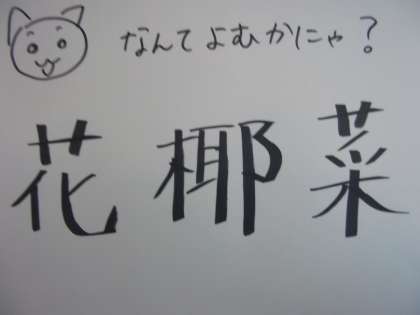 なんてよむかにゃ?
花椰菜